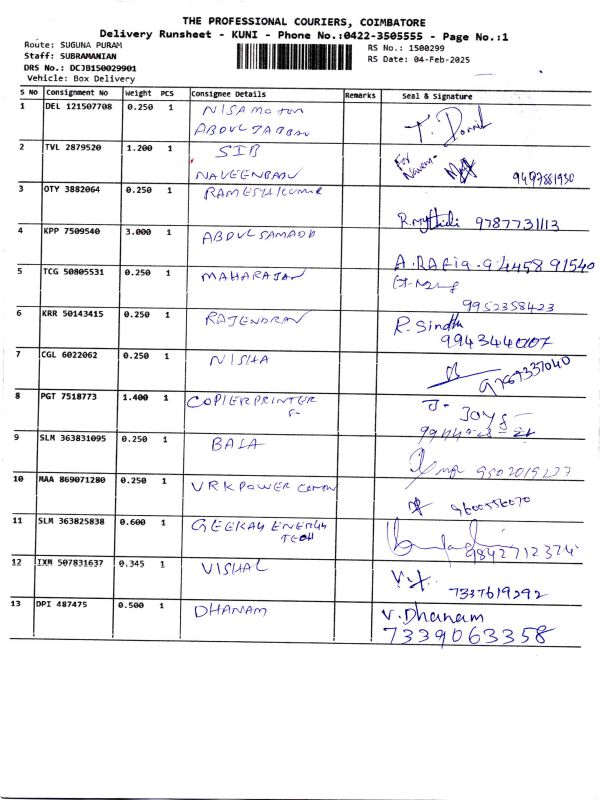 THE PROFESSIONAL COURIERS, COIMBATORE
Delivery Runsheet - KUNI - Phone No.:0422-3505555 - Page No.:1
Route: SUGUNA PURAM RS No.: 1500299
Staff: SUBRAMANIAN RS Date: 04-Feb-2025
DRS No.: DCJB150029901
Vehicle: Box Delivery
S No Consignment No Weight PCS Consignee Details Remarks Seal & Signature
1 DEL 121507708 0.250 1 NISA MOTOR
ABDUL JABBAR
2 TVL 2879520 1.200 1 SIB For
NAVEENBABU Naveen
3 OTY 3882064 0.250 1 RAMESH KUMAR
R.Mythidi 9787731113
4 KPP 7509540 3.000 1 ABDUL SAMADD
A.RAFIA. 9445891540
5 TCG 50805531 0.250 1 MAHARAJAN
9952358423
6 KRR 50143415 0.250 1 RAJENDRAN R. Sindhu
9943444007
7 CGL 6022062 0.250 1 NISHA
8 PGT 7518773 1.400 1 COPIER PRINTER J. Joys
9 SLM 363831095 0.250 1 BALA
10 MAA 869071280 0.250 1 VRK POWER 9600556070
11 SLM 363825838 0.600 1 GEEKAY ENERGY
TECH 9842712374
12 IXM 507831637 0.345 1 VISHAL
7337619292
13 DPI 487475 0.500 1 DHANAM V. Dhanam
7339063358